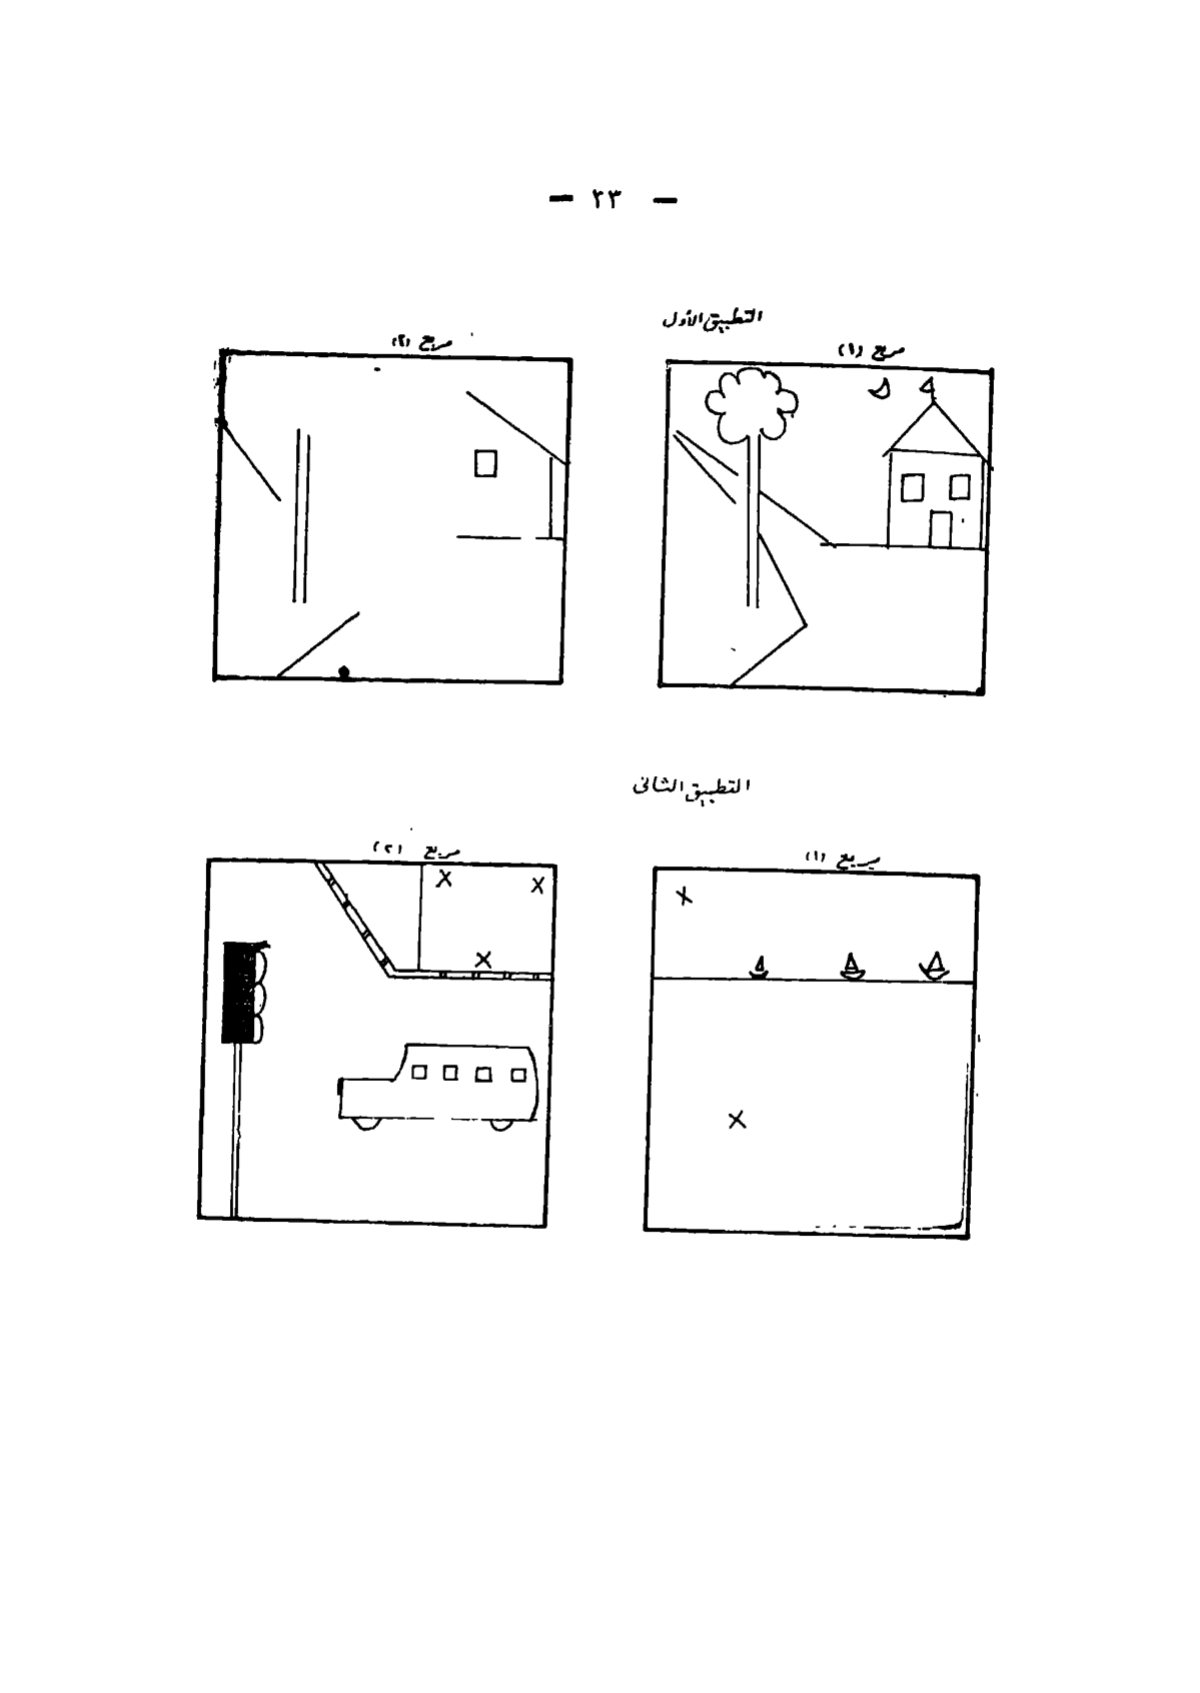 — ٢٣ —
التطبيق الأول
مربع (١)
مربع (٢)
التطبيق الثانى
مربع (١)
مربع (٢)